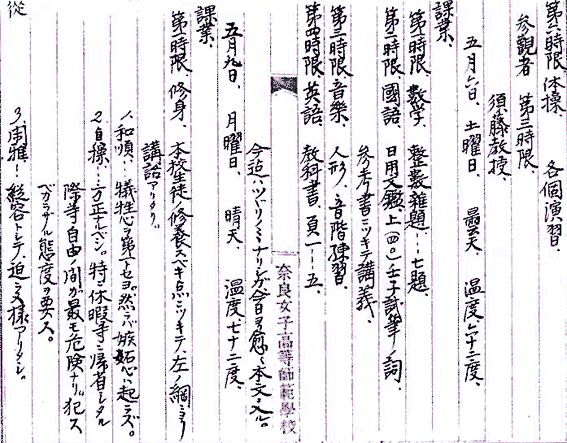 第六時限 体操、 各個演習、
参観者 第三時限、
須藤教授、
五月六日、 土曜日、 曇天、 温度六十二度、
課業、
第一時限 数学、 整数雑題…七題、
第二時限 國語、 日用文鑑上(四)壬子試筆ノ詞、
参考書ニツキテ講義、
第三時限 音樂、 人形、音階練習、
第四時限 英語、 教科書、頁一ー五、
今迠ハツヾリノミナリシガ今日ヨリ愈〻本文ニ入ル。
奈良女子高等師範學校
五月九日、 月曜日、 晴天、 温度七十二度、
課業、
第一時限 修身、 本校生徒ノ修養スベキ点ニツキテ左ノ綱ニヨリ
講話アリタリ。
1、和順…犠牲ヲ第一トセヨ。然ラバ嫉妬心ハ起ラズ。
2、自操…方正ナルベシ。特ニ休暇等ニ帰省シタル
際等自由ノ間ガ最モ危険ナリ。犯ス
ベカラザル態度ヲ要ス。
3、閑雅ー 総容トシテ、迫ラヌ様アリタシ。
従